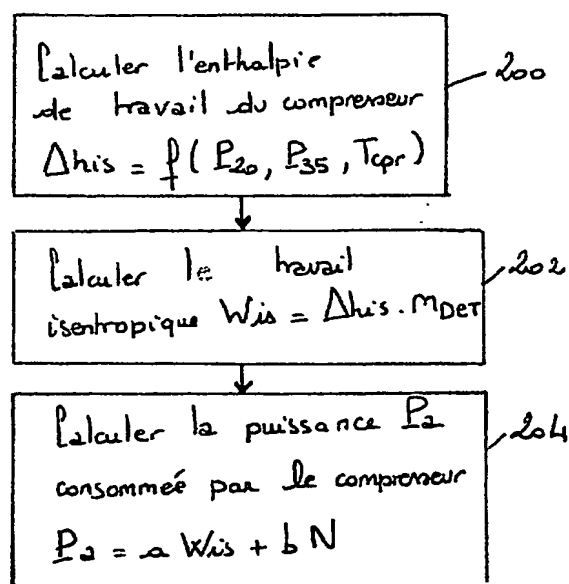 Calculer l'enthalpie
de travail du compresseur
Δhis = f( P20, P35, Tcpr )
200
Calculer le travail
isentropique Wis = Δhis . mDET
202
Calculer la puissance Pa
consommée par le compresseur
Pa = a Wis + b N
204